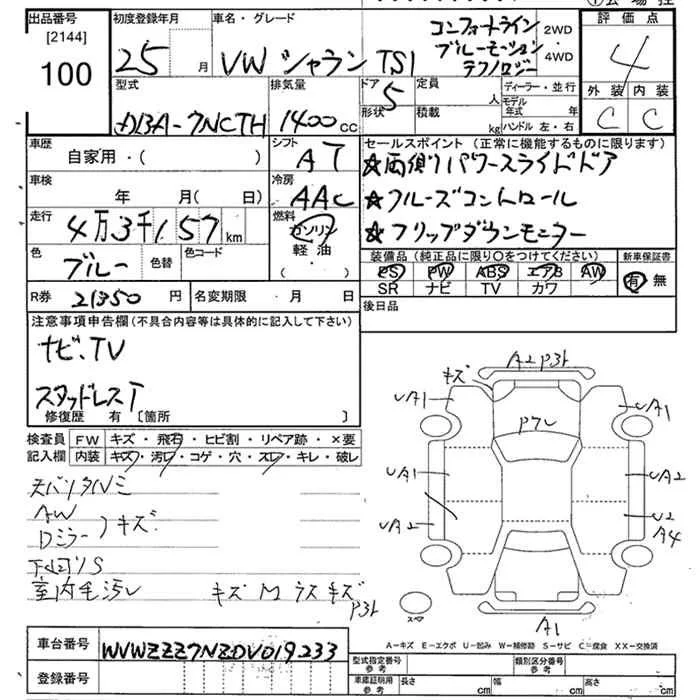 出品番号
[2144]
100
初度登録年月
25 月
車名・グレード
VW シャラン TSI
コンフォートライン
ブルーモーション
テクノロジー
2WD
・4WD
評価点
4
外装 内装
C C
型式
DBA-7NCTH
排気量
1400cc
ドア
5
形状
定員
人
積載
kg
ディーラー・並行
モデル
年式 年
ハンドル 左・右
車歴
自家用・( )
シフト
AT
車検
年 月( 日)
冷房
AAC
走行
4万3千157km
燃料
ガソリン
軽油
( ・ )
色
ブルー
色替
色コード
R券 21350円
名変期限 ・ 月 ・ 日
セールスポイント(正常に機能するものに限ります)
☆両側パワースライドドア
☆クルーズコントロール
☆フリップダウンモニター
装備品(純正品に限り○をつけてください)
PS PW ABS エアB AW
SR ナビ TV カワ
新車保証書
有 無
後日品
注意事項申告欄(不具合内容等は具体的に記入して下さい)
ナビ、TV
スタッドレスT
修復歴 有〔箇所 〕
検査員
記入欄
FW キズ・飛石・ヒビ割・リペア跡・×要
内装 キズ・汚レ・コゲ・穴・スレ・キレ・破レ
AW
Dミラー キズ
下回りS
室内毛汚レ
キズ M ラス キズ
A2 P3ト
キズ
UA1
UA1
P7レ
UA1
UA2
UA2
U2
A4
P3ト
スペア
A1
A=キズ E=エクボ U=凹み W=補修跡 S=サビ C=腐食 XX=交換済
車台番号
WVWZZZ7NZDV019233
登録番号
型式指定番号
参考
類別区分番号
参考
車庫証明用
参考
長さ cm
幅 cm
高さ cm